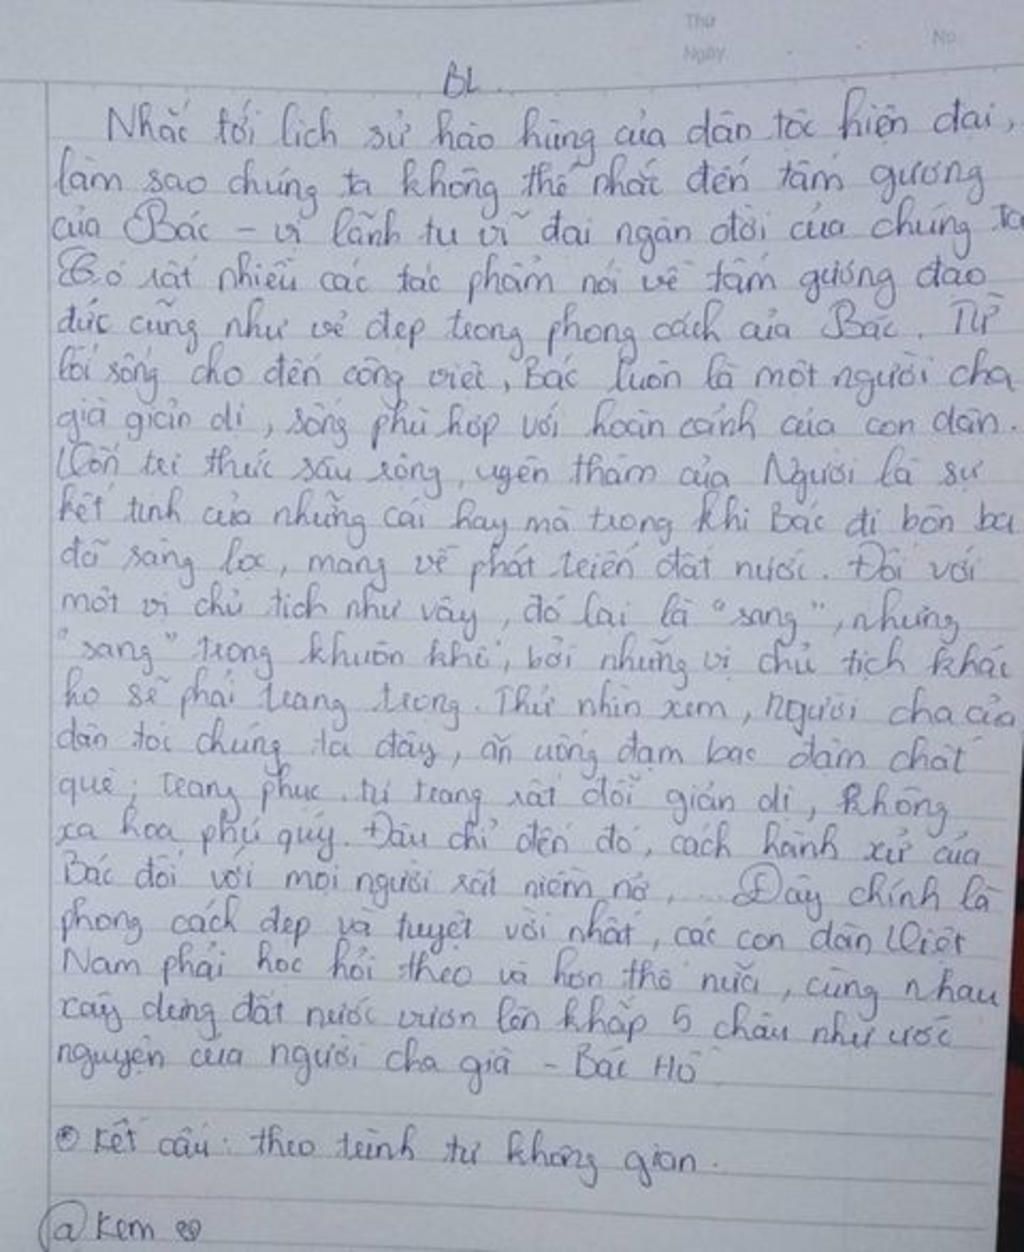 Thứ
Ngày
No
BL
Nhắc tới lịch sử hào hùng của dân tộc hiện đại,
làm sao chúng ta không thể nhắc đến tấm gương
của Bác - vị lãnh tụ vĩ đại ngàn đời của chúng ta
Có rất nhiều các tác phẩm nói về tấm gương đạo
đức cũng như vẻ đẹp trong phong cách của Bác. Từ
lối sống cho đến công việc, Bác luôn là một người cha
già giản dị, sống phù hợp với hoàn cảnh của con dân.
Vốn tri thức sâu rộng, uyên thâm của Người là sự
kết tinh của những cái hay mà trong khi Bác đi bôn ba
đã sàng lọc, mang về phát triển đất nước. Đối với
một vị chủ tịch như vậy, đó lại là "sang", nhưng
"sang" trong khuôn khổ, bởi những vị chủ tịch khác
họ sẽ phải trang trọng. Thử nhìn xem, người cha của
dân tộc chúng ta đây, ăn uống đạm bạc đậm chất
quê; trang phục, tư trang rất đỗi giản dị, không
xa hoa phú quý. Đâu chỉ đến đó, cách hành xử của
Bác đối với mọi người rất niềm nở,... Đây chính là
phong cách đẹp và tuyệt vời nhất, các con dân Việt
Nam phải học hỏi theo và hơn thế nữa, cùng nhau
xây dựng đất nước vươn lên khắp 5 châu như ước
nguyện của người cha già - Bác Hồ
Kết cấu: theo trình tự không gian.
@Kem